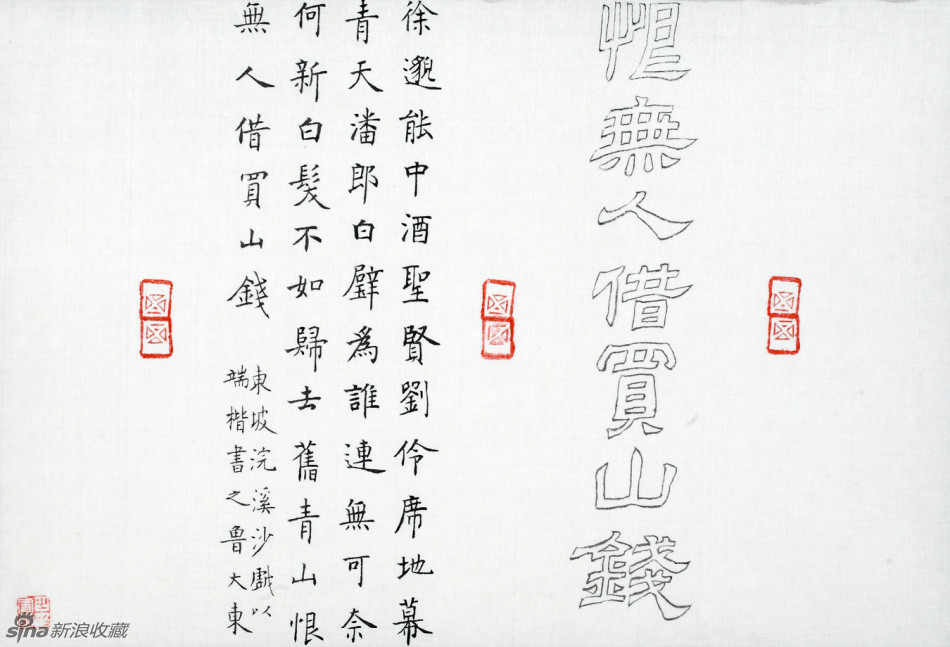 恨無人借買山錢
徐邈能中酒聖賢劉伶席地幕
青天潘郎白璧為誰連無可奈
何新白髮不如歸去舊青山恨
無人借買山錢
東坡浣溪沙戲以
端楷書之魯大東
sina新浪收藏